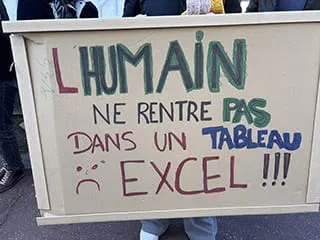 L'HUMAIN
NE RENTRE PAS
DANS UN TABLEAU
EXCEL !!!